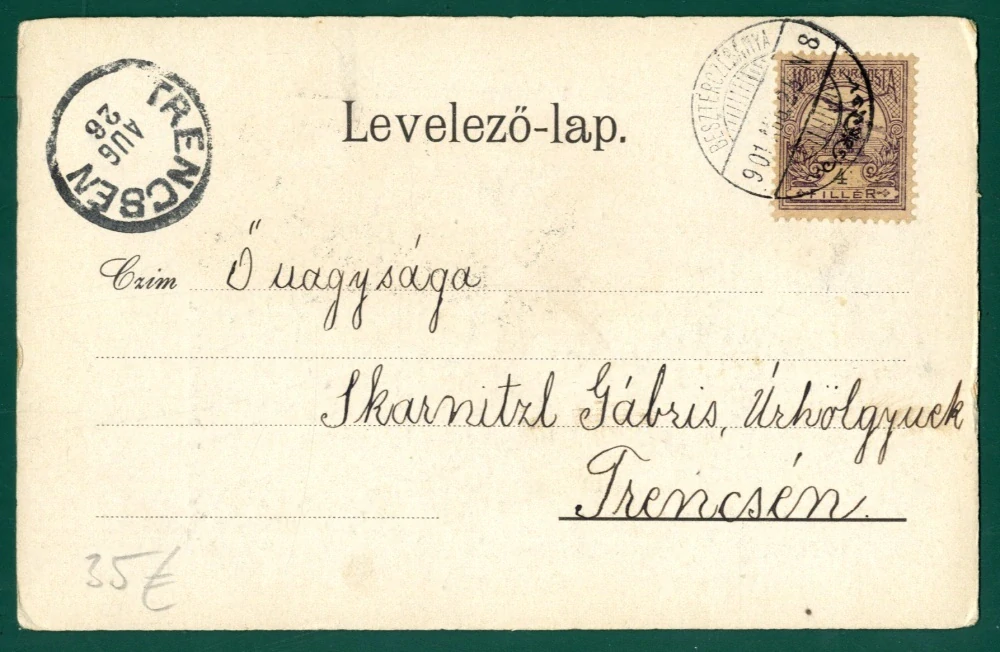 TRENCSÉN
AUG
26
Levelező-lap.
BESZTERCZEBÁNYA
901 AUG
8
MAGYAR KIR. POSTA
4
FILLÉR
Czim Ő nagysága
Skarnitzl Gábris, Úrhölgynek
Trencsén.
35€